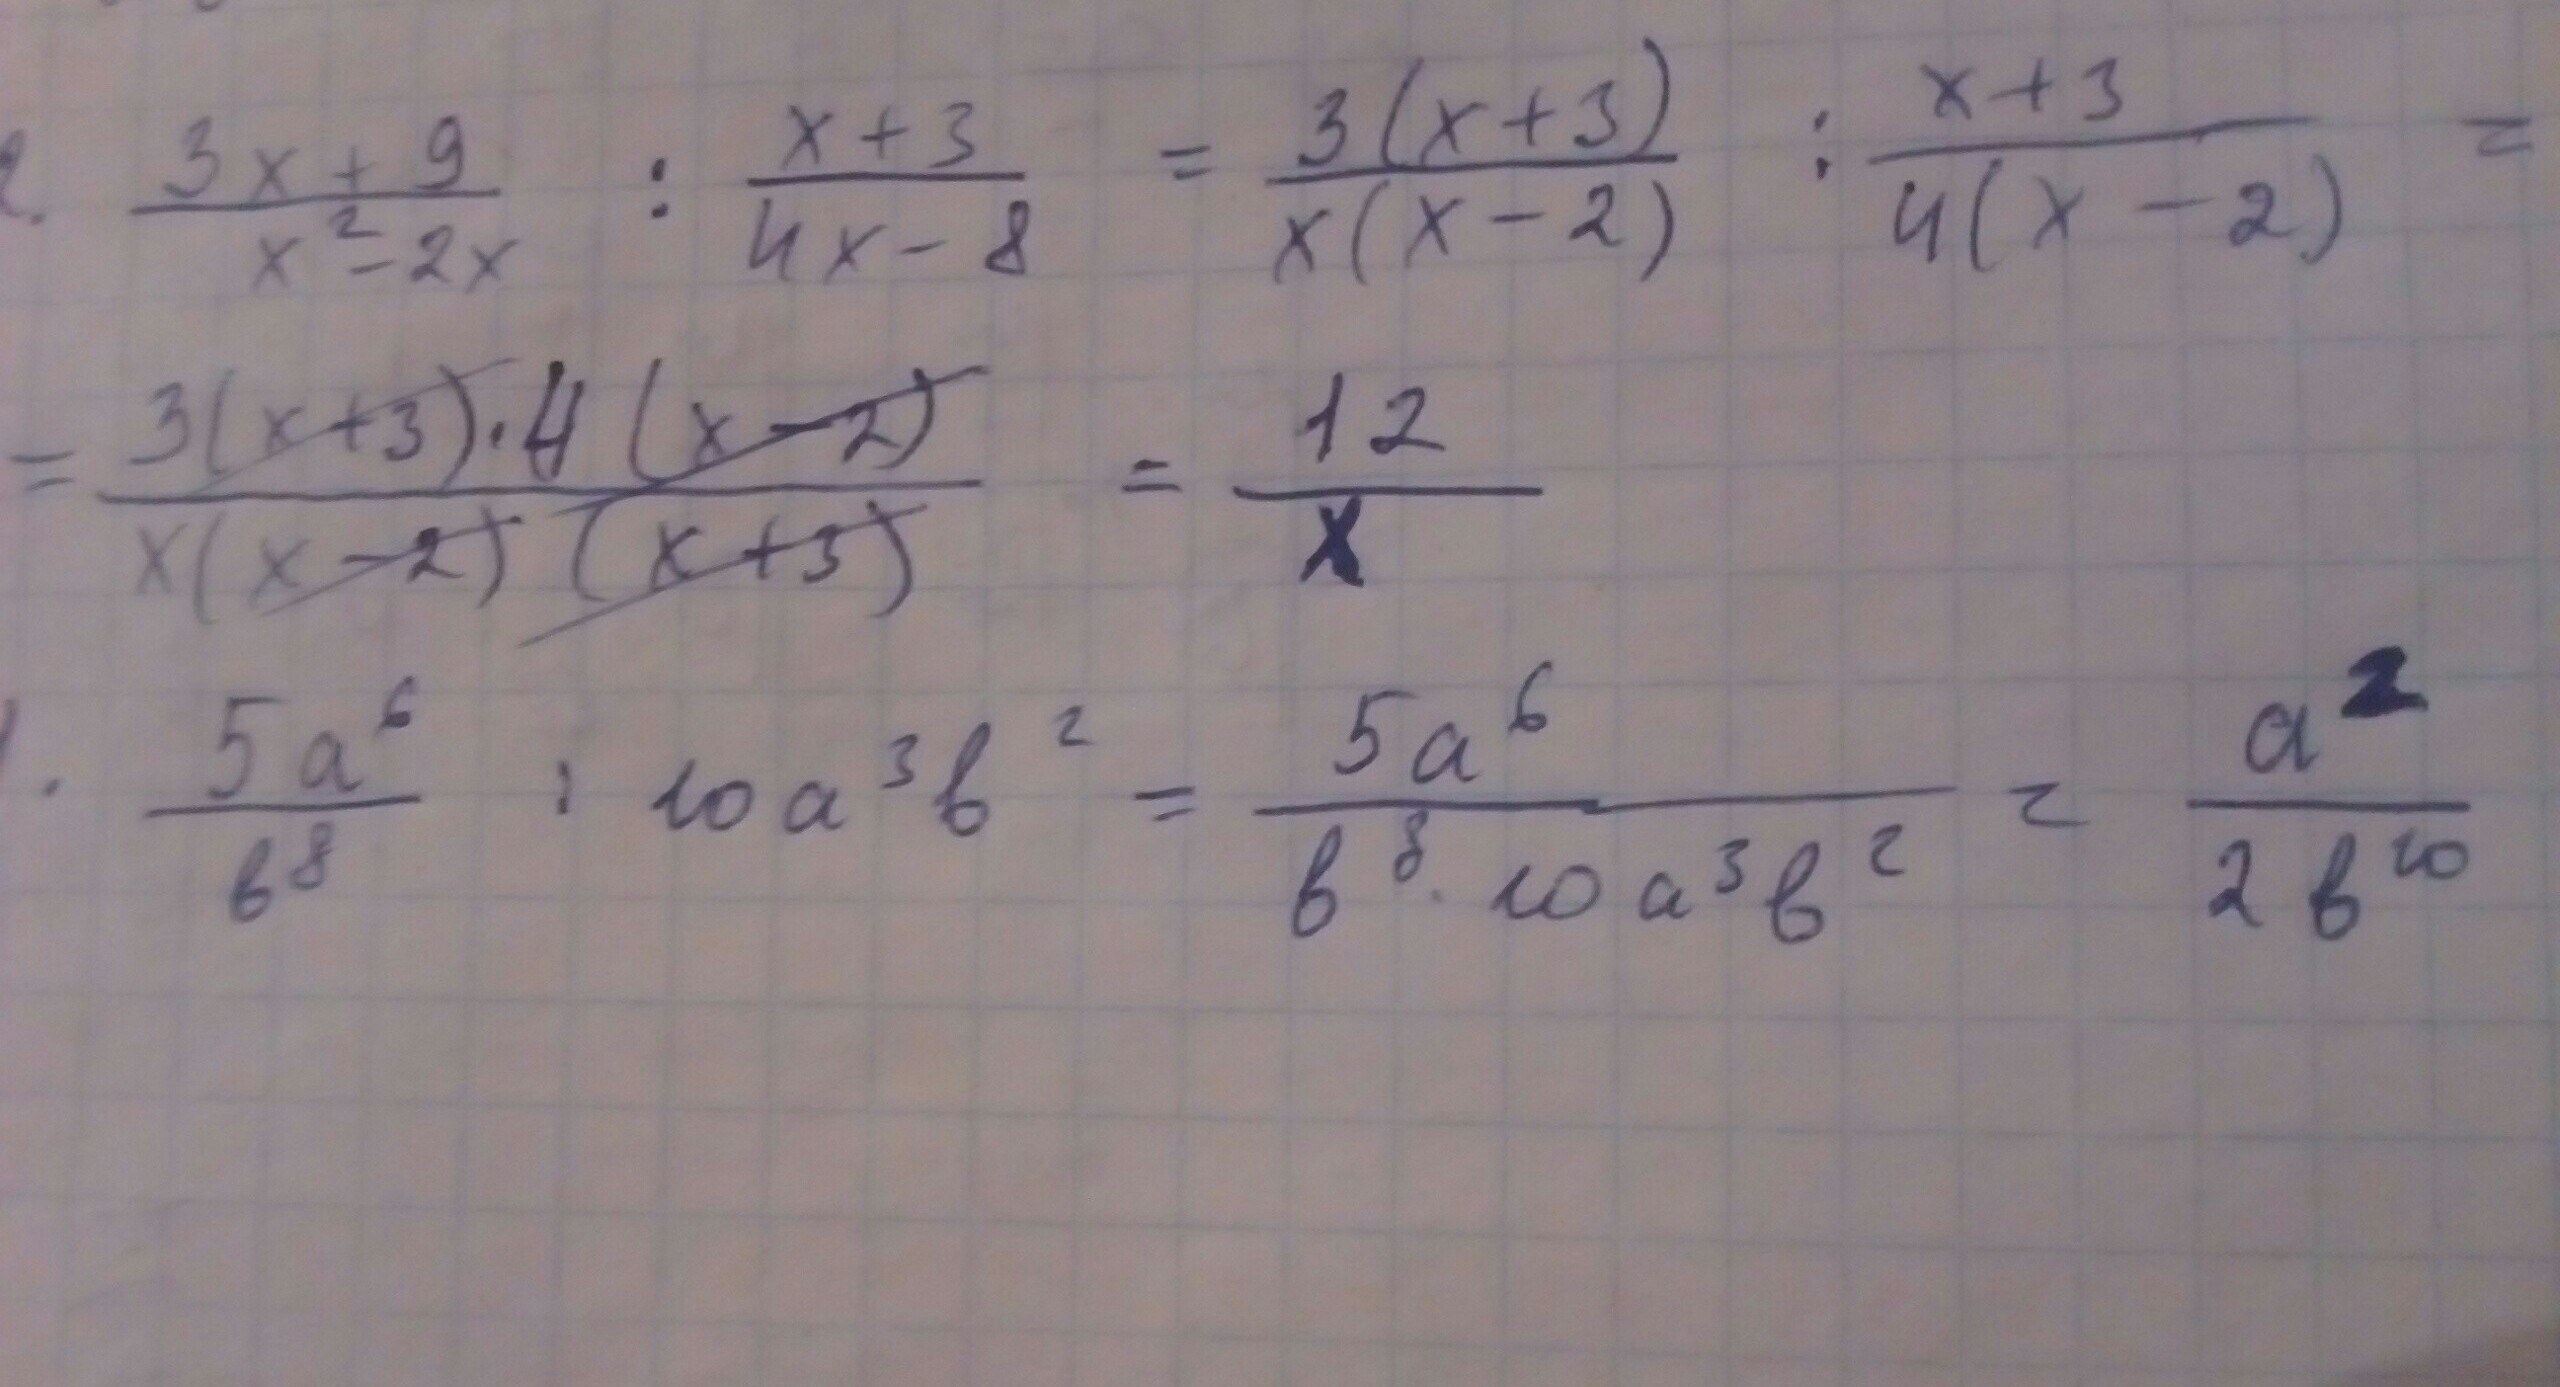 2. (3x + 9)/(x² - 2x) : (x + 3)/(4x - 8) = 3(x+3)/x(x-2) : (x+3)/4(x-2) =
= 3(x+3)·4(x-2)/x(x-2)(x+3) = 12/x
1. 5a⁶/b⁸ : 10a³b² = 5a⁶/b⁸·10a³b² = a²/2b¹⁰